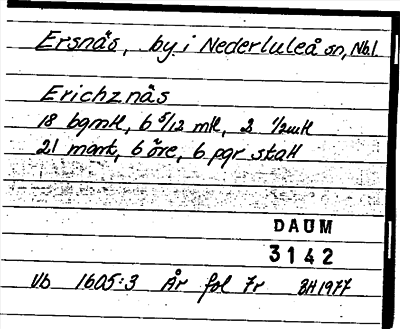 Ersnäs, by i Nederluleå sn, Nb.l
Erichznäs
18 bgmk, 6 5/12 mk, 2 1/2mk
21 mark, 6 öre, 6 pgr skatt
DAUM
3142
Vb 1605:3 År fol 7r BH1977